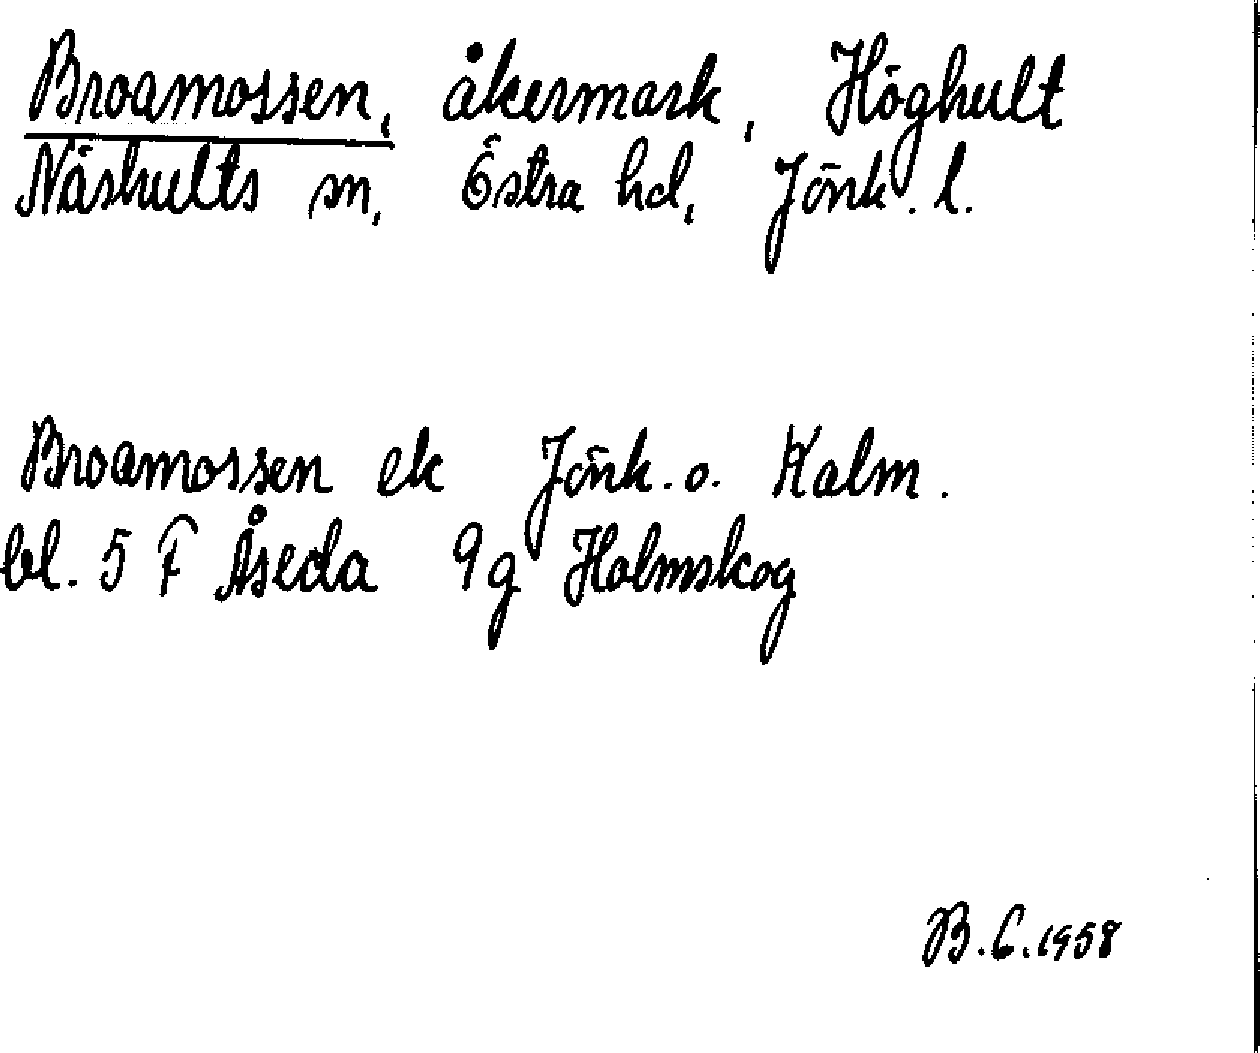 Broamossen, åkermark, Höghult
Näshults sn, Östra hd, Jönk. l.
Broamossen ek Jönk. o. Kalm.
bl. 5 F Åseda 9g Holmskog
B.C.1958